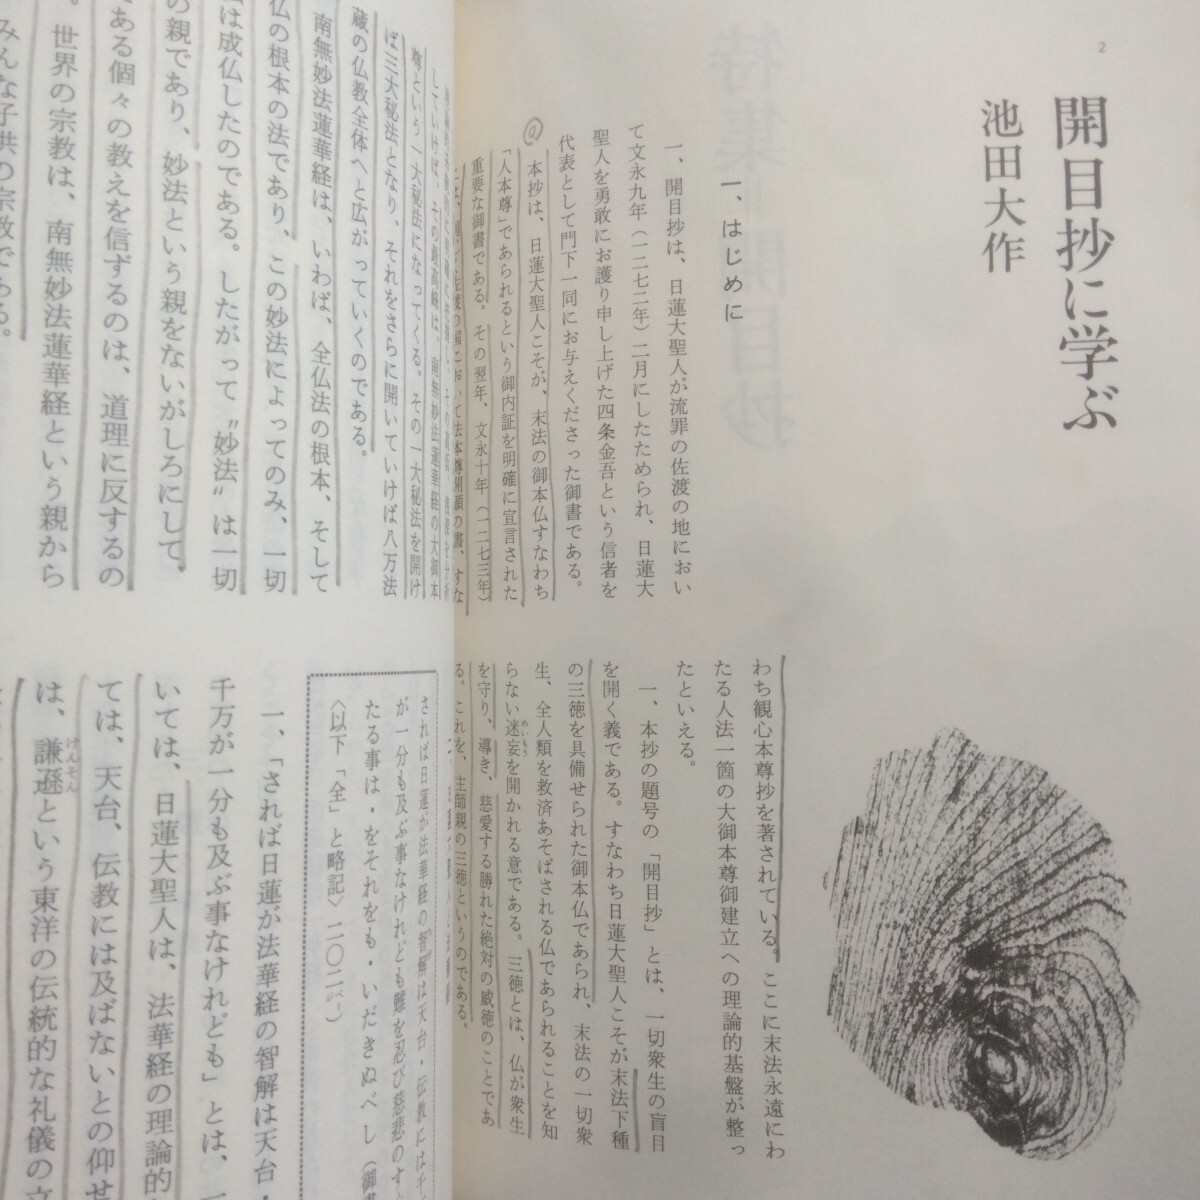 2
開目抄に学ぶ
池田大作
一、はじめに
一、開目抄は、日蓮大聖人が流罪の佐渡の地におい
て文永九年(一二七二年)二月にしたためられ、日蓮大
聖人を勇敢にお護り申し上げた四条金吾という信者を
代表として門下一同にお与えくださった御書である。
@
本抄は、日蓮大聖人こそが、末法の御本仏すなわち
「人本尊」であられるという御内証を明確に宣言された
重要な御書である。その翌年、文永十年(一二七三年)
において法本尊開顕の書、すな
わち観心本尊抄を著されている。ここに末法永遠にわ
たる人法一箇の大御本尊御建立への理論的基盤が整っ
たといえる。
一、本抄の題号の「開目抄」とは、一切衆生の盲目
を開く義である。すなわち日蓮大聖人こそが末法下種
の三徳を具備せられた御本仏であられ、末法の一切衆
生、全人類を救済あそばされる仏であられることを知
らない迷妄を開かれる意である。三徳とは、仏が衆生
めいもう
を守り、導き、慈愛する勝れた絶対の威徳のことであ
る。これを、主師親の三徳というのである。
していけば、その最高峰は、南無妙法蓮華経の大御本
尊という一大秘法になってくる。その一大秘法を開け
ば三大秘法となり、それをさらに開いていけば八万法
蔵の仏教全体へと広がっていくのである。
南無妙法蓮華経は、いわば、全仏法の根本、そして
仏の根本の法であり、この妙法によってのみ、一切
は成仏したのである。したがって〝妙法〟は一切
の親であり、妙法という親をないがしろにして、
ある個々の教えを信ずるのは、道理に反するの
。世界の宗教は、南無妙法蓮華経という親から
みんな子供の宗教である。
されば日蓮が法華経の智解は天台・伝教には千
が一分も及ぶ事なけれども難を忍び慈悲のす
たる事は・をそれをも・いだきぬべし(御書
〈以下「全」と略記〉二〇二㌻)
一、「されば日蓮が法華経の智解は天台・
千万が一分も及ぶ事なけれども」とは、
いては、日蓮大聖人は、法華経の理論的
ては、天台、伝教には及ばないとの仰せ
は、謙遜という東洋の伝統的な礼儀の立
けんそん